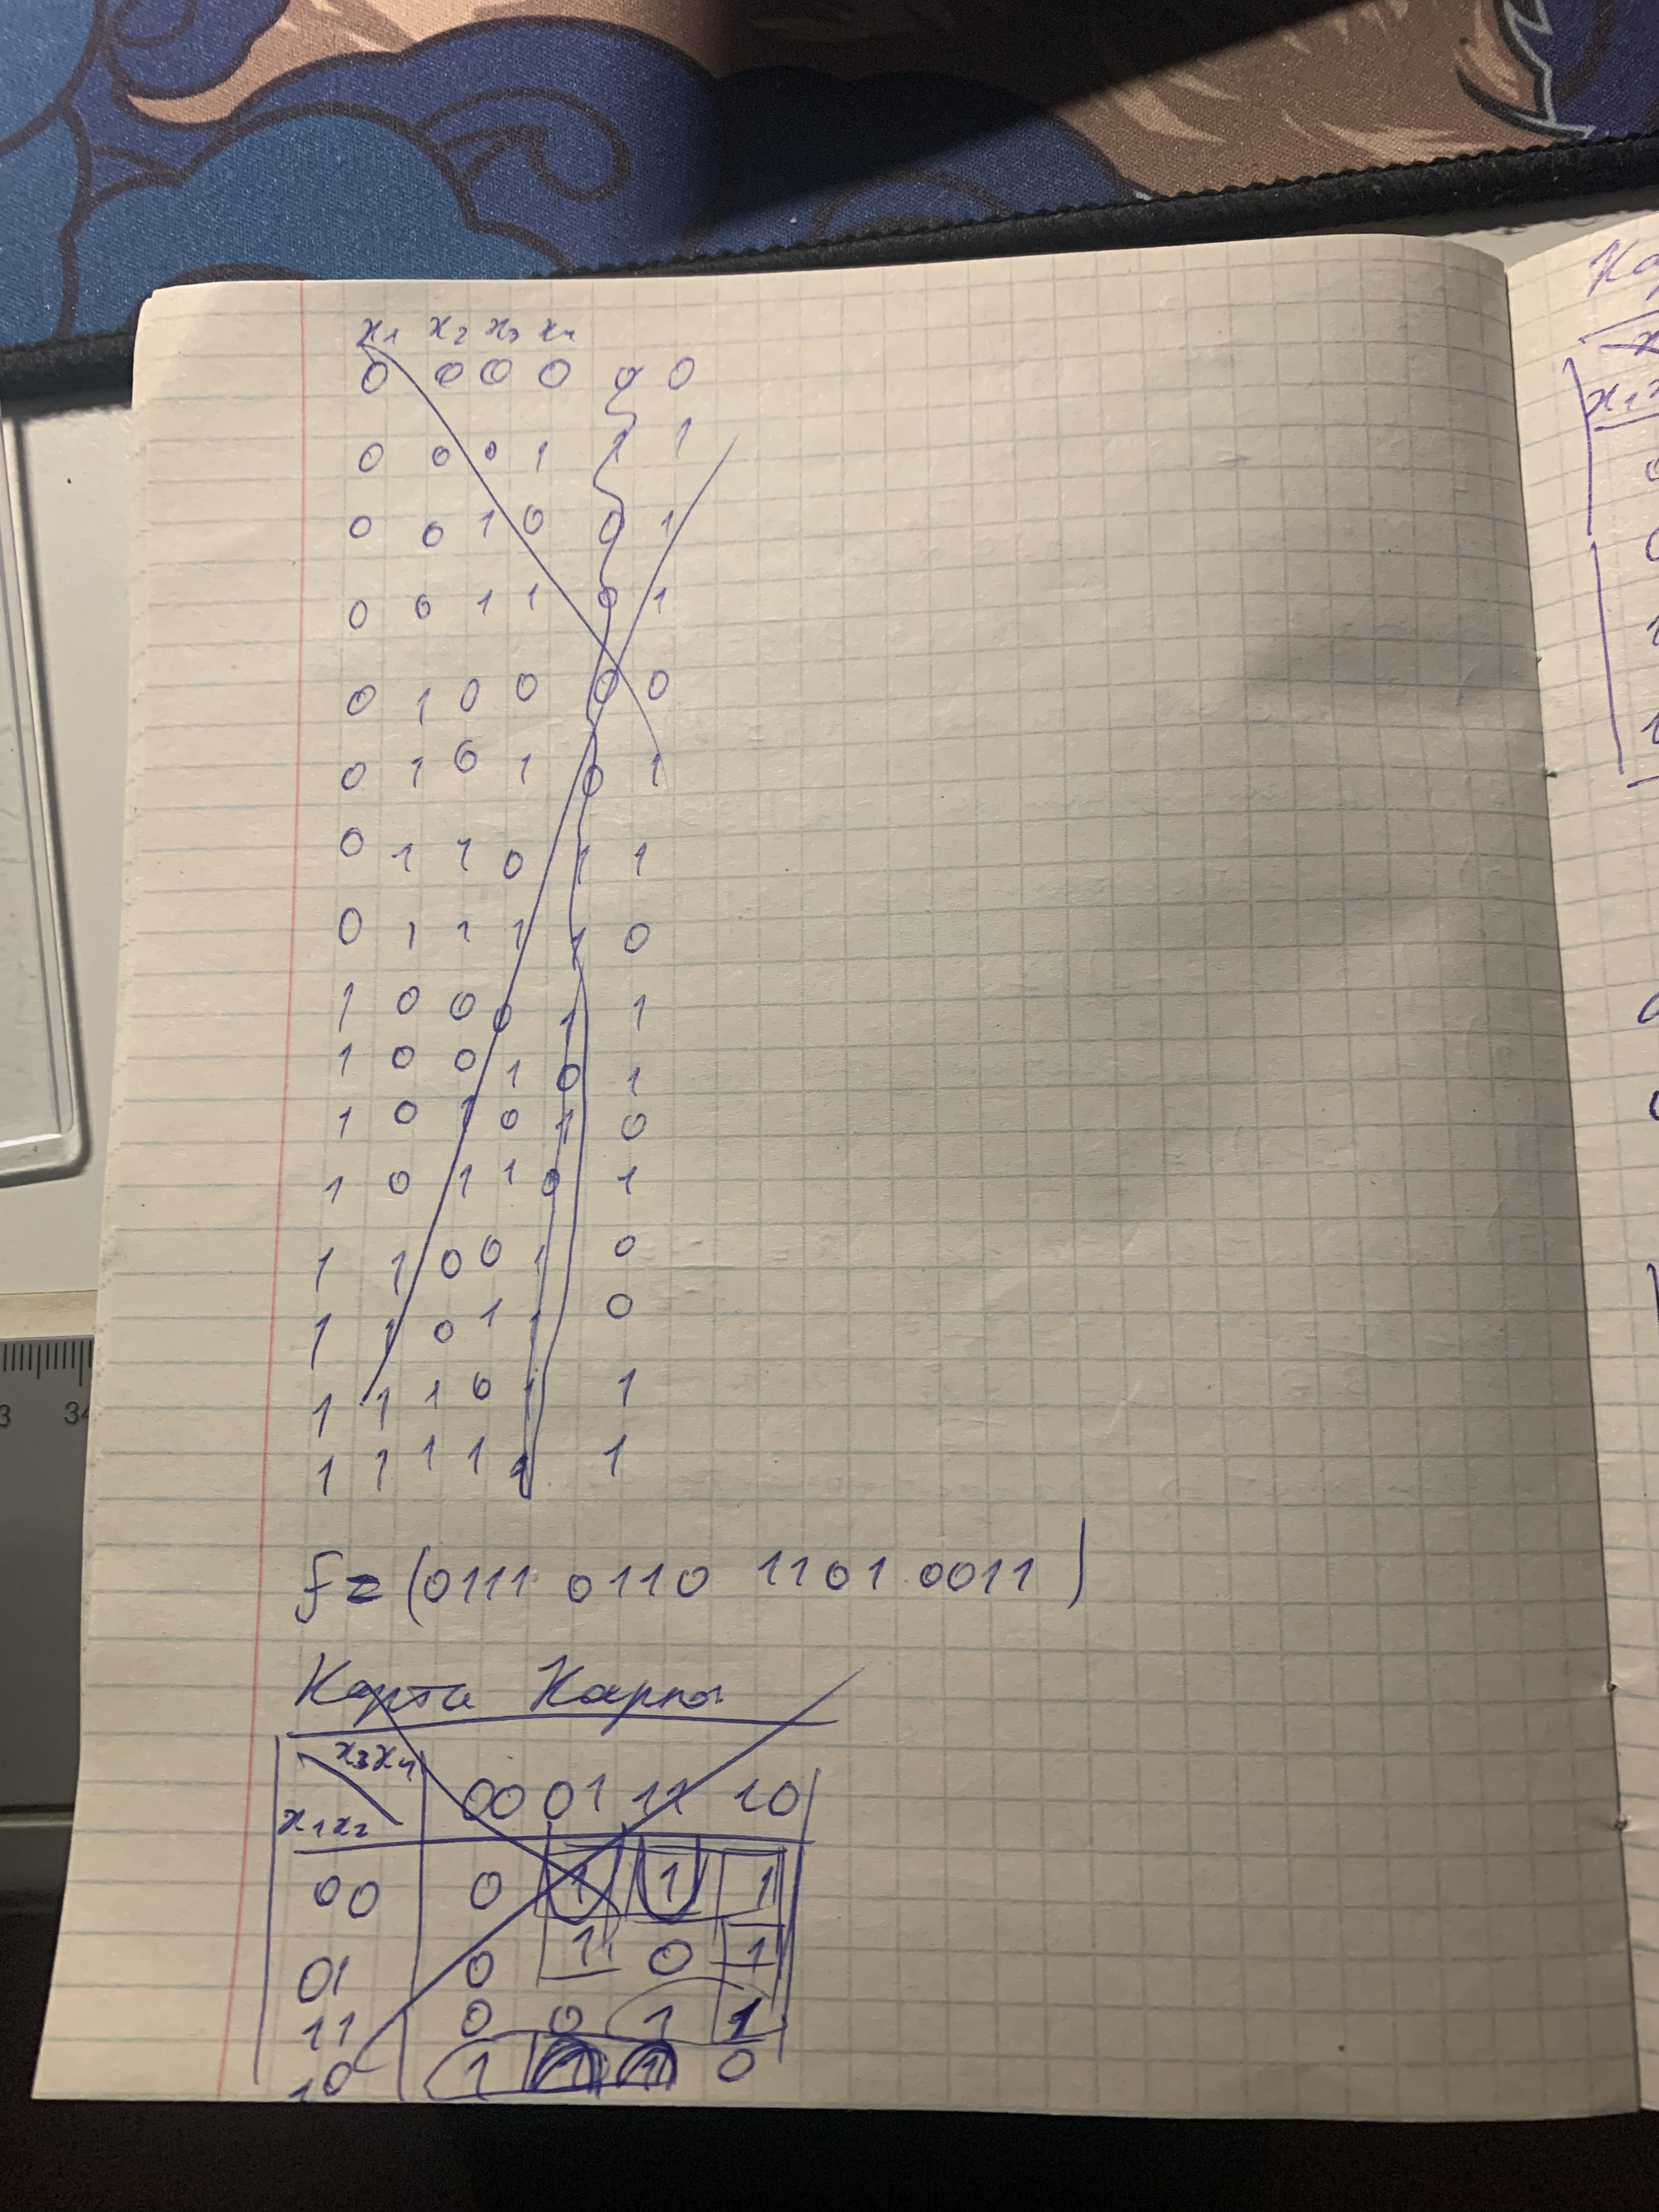 x₁ x₂ x₃ x₄
0 0 0 0 0 0
0 0 0 1 1 1
0 0 1 0 0 1
0 0 1 1 0 1
0 1 0 0 0 0
0 1 0 1 0 1
0 1 1 0 1 1
0 1 1 1 1 0
1 0 0 0 1 1
1 0 0 1 0 1
1 0 1 0 1 0
1 0 1 1 0 1
1 1 0 0 1 0
1 1 0 1 1 0
1 1 1 0 1 1
1 1 1 1 1 1
f = (0111 0110 1101 0011)
Карта Карно
x₃x₄
x₁x₂ 00 01 11 10
00 0 1 1 1
01 0 1 0 1
11 0 0 1 1
10 1 1 1 0
33 34